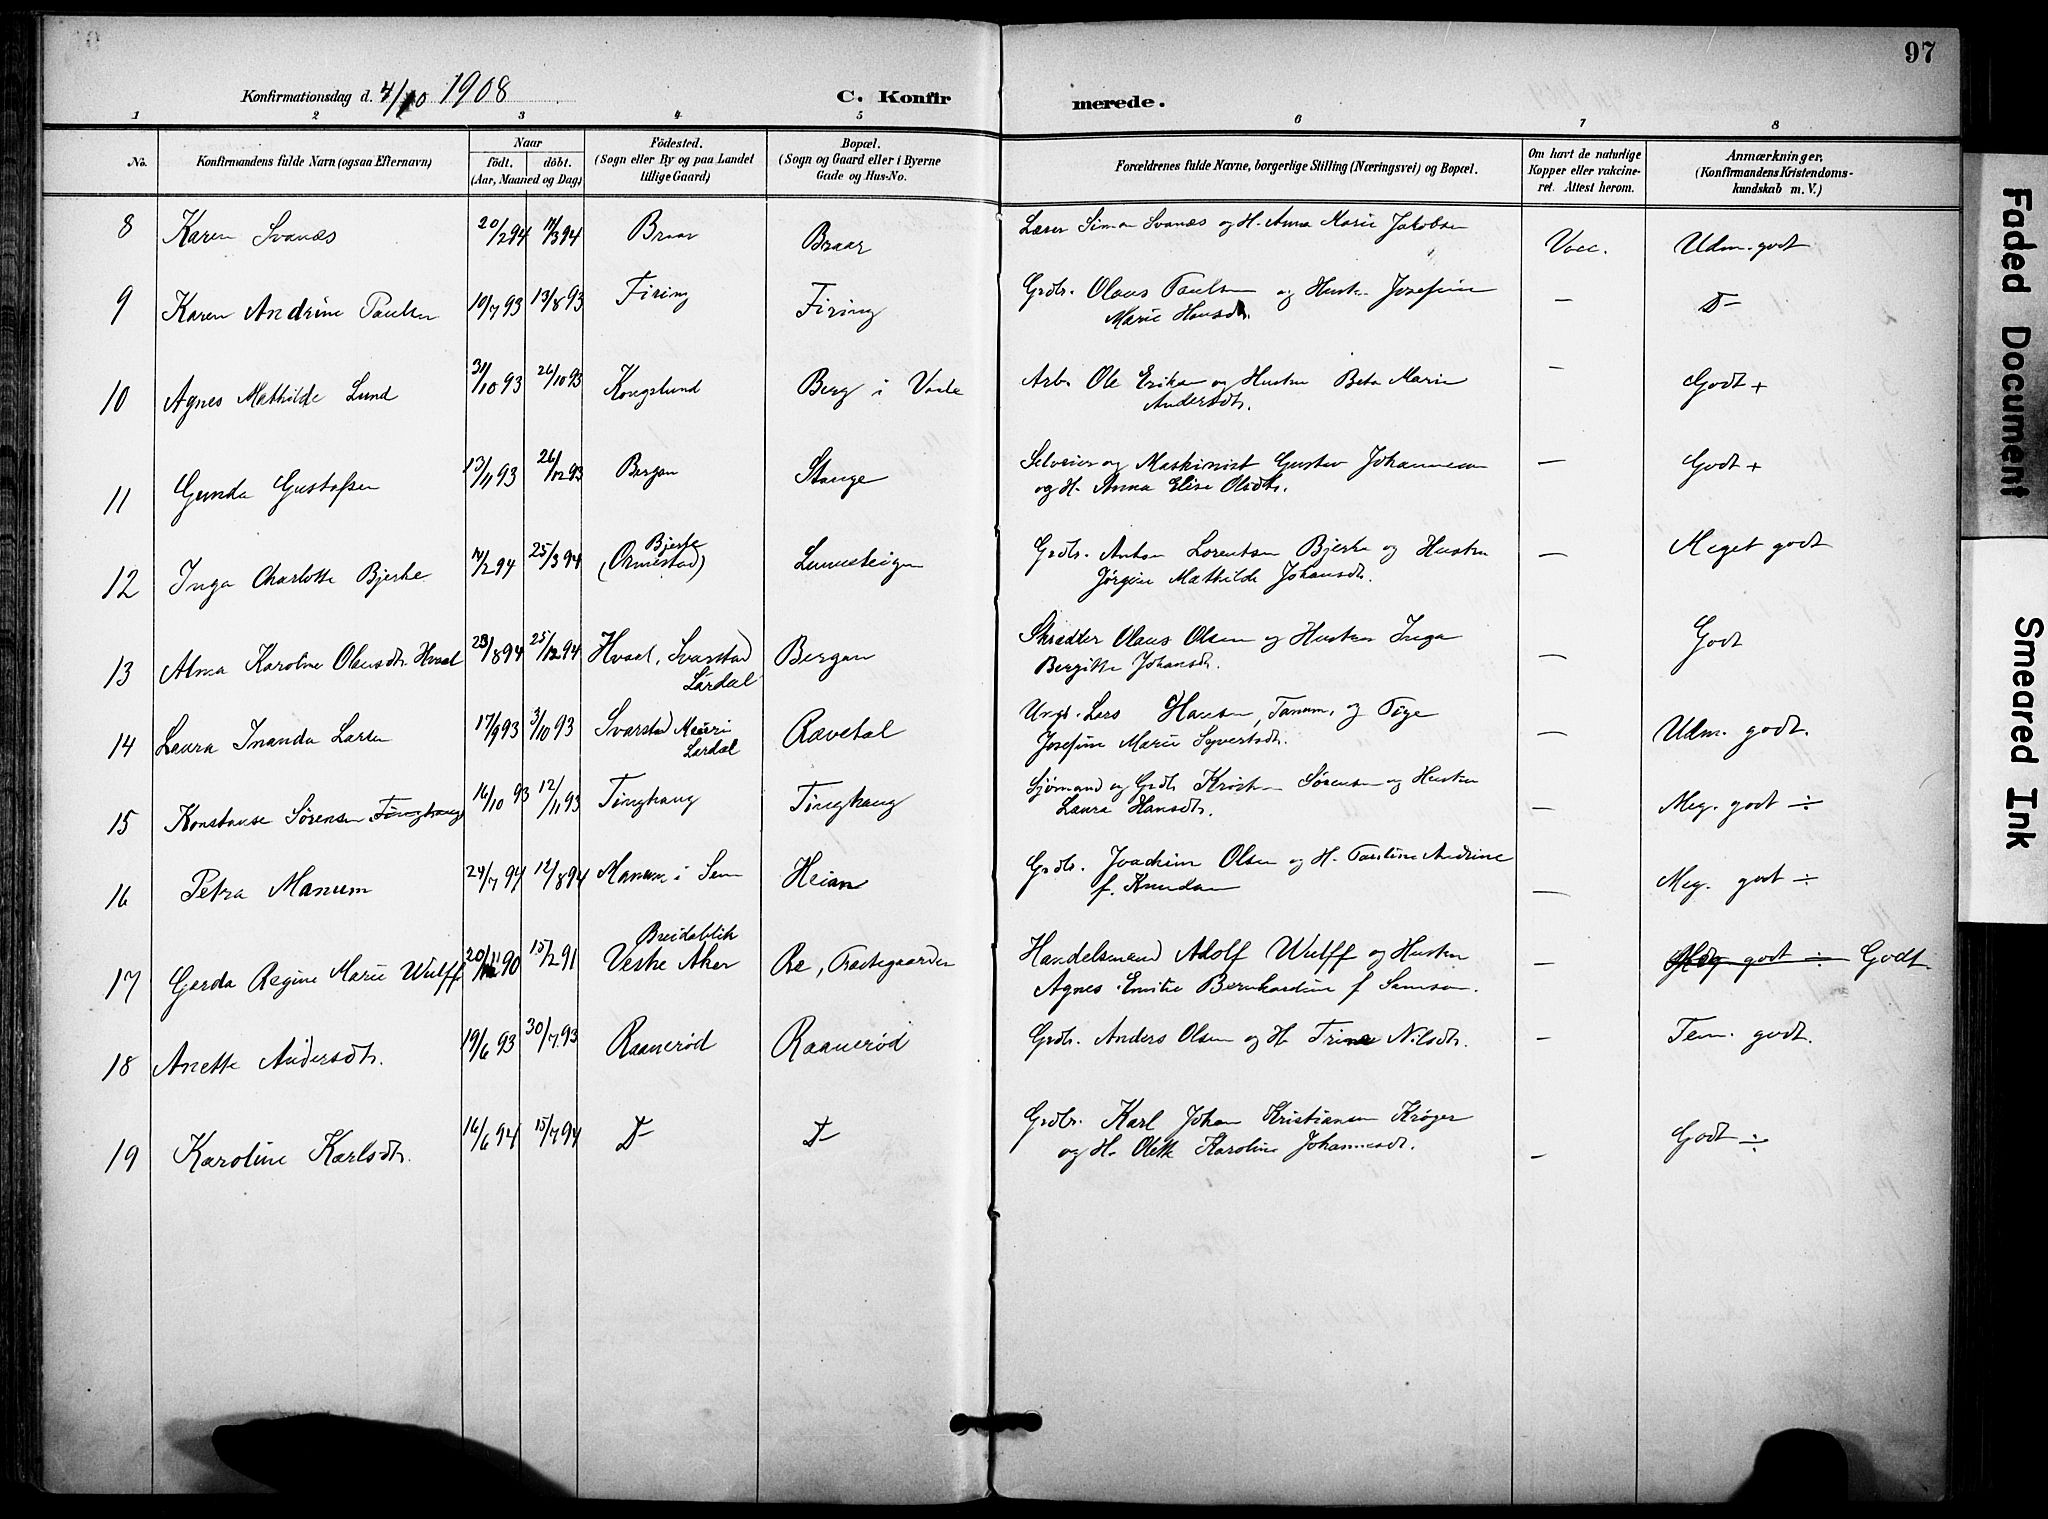 97
Konfirmationsdag d. 4/10 1908
C. Konfirmerede.
1 2 3 4 5 6 7 8
No.
Konfirmandens fulde Navn (ogsaa Efternavn)
Naar
födt. döbt.
(Aar, Maaned og Dag)
Födested.
(Sogn eller By og paa Landet
tillige Gaard)
Bopæl.
(Sogn og Gaard eller i Byerne
Gade og Hus-No.
Forældrenes fulde Navne, borgerlige Stilling (Næringsvei) og Bopæl.
Om havt de naturlige
Kopper eller vakcine-
ret. Attest herom.
Anmærkninger.
(Konfirmandens Kristendoms-
kundskab m. V.)
8 Karen Svanæs 20/2 94 Braar Braar Lærer Simon Svanæs og H. Anna Marie Jakobsen Vacc. Udm. godt
9 Karen Andrine Paulsen 19/7 93 13/8 93 Firing Firing Grdbr. Olaus Paulsen og Hustru Josefine
Marie Hansdtr. — D–
10 Agnes Mathilde Lund 26/10 93 Kongslund Berg i Vaale Arb. Ole Eriksen og Hustru Berta Marie
Andersdtr. — Godt +
11 Gunda Gustafsen 13/11 93 26/12 93 Bergan Stange Selveier og Maskinist Gustav Johannesen
og H. Anna Elise Olsdtr. — Godt +
12 Inga Charlotte Bjerke 25/3 94 Bjerke
(Ormestad) Grdbr. Anton Lorentsen Bjerke og Hustru
Jørgine Mathilde Johansdtr. — Meget godt
13 Alma Karoline Olausdtr. Hvaal 23/8 94 25/12 94 Hvaal, Svarstad
Lardal Bergan Skrædder Olaus Olsen og Hustru Inga
Bergitte Johansdtr. — Godt
14 Laura Inanda Larsen 17/9 93 3/10 93 Svarstad
Lardal Rævetal Ungk. Lars Hansen, Tanum, og Pige
Josefine Marie Syvertsdtr. — Udm. godt.
15 Konstanse Sørensen Tinghaug 16/10 93 12/11 93 Tinghaug Tinghaug Sjømand og Grdbr. Kristen Sørensen og Hustru
Laura Hansdtr. — Meg. godt ÷
16 Petra Manum 24/7 94 12/8 94 Manum i Sem Heian Grdbr. Joachim Olsen og H. Pauline Andrine
f. Knudsen — Meg. godt ÷
17 Gerda Regine Marie Wulff 20/11 90 15/2 91 Breidablik
Vestre Aker Re, Præstegaarden Handelsmand Adolf Wulff og Hustru
Agnes Emilie Bernhardine f. Samson. — Meg godt ÷ Godt.
18 Anette Andersdtr. 19/6 93 30/7 93 Raanerød Raanerød Grdbr. Anders Olsen og H. Trine Nilsdtr. — Tem. godt.
19 Karoline Karlsdtr. 16/6 94 15/7 94 D– D– Grdbr. Karl Johan Kristiansen Krøger
og H. Olette Karoline Johannesdtr. — Godt ÷
Faded Document
Smeared Ink